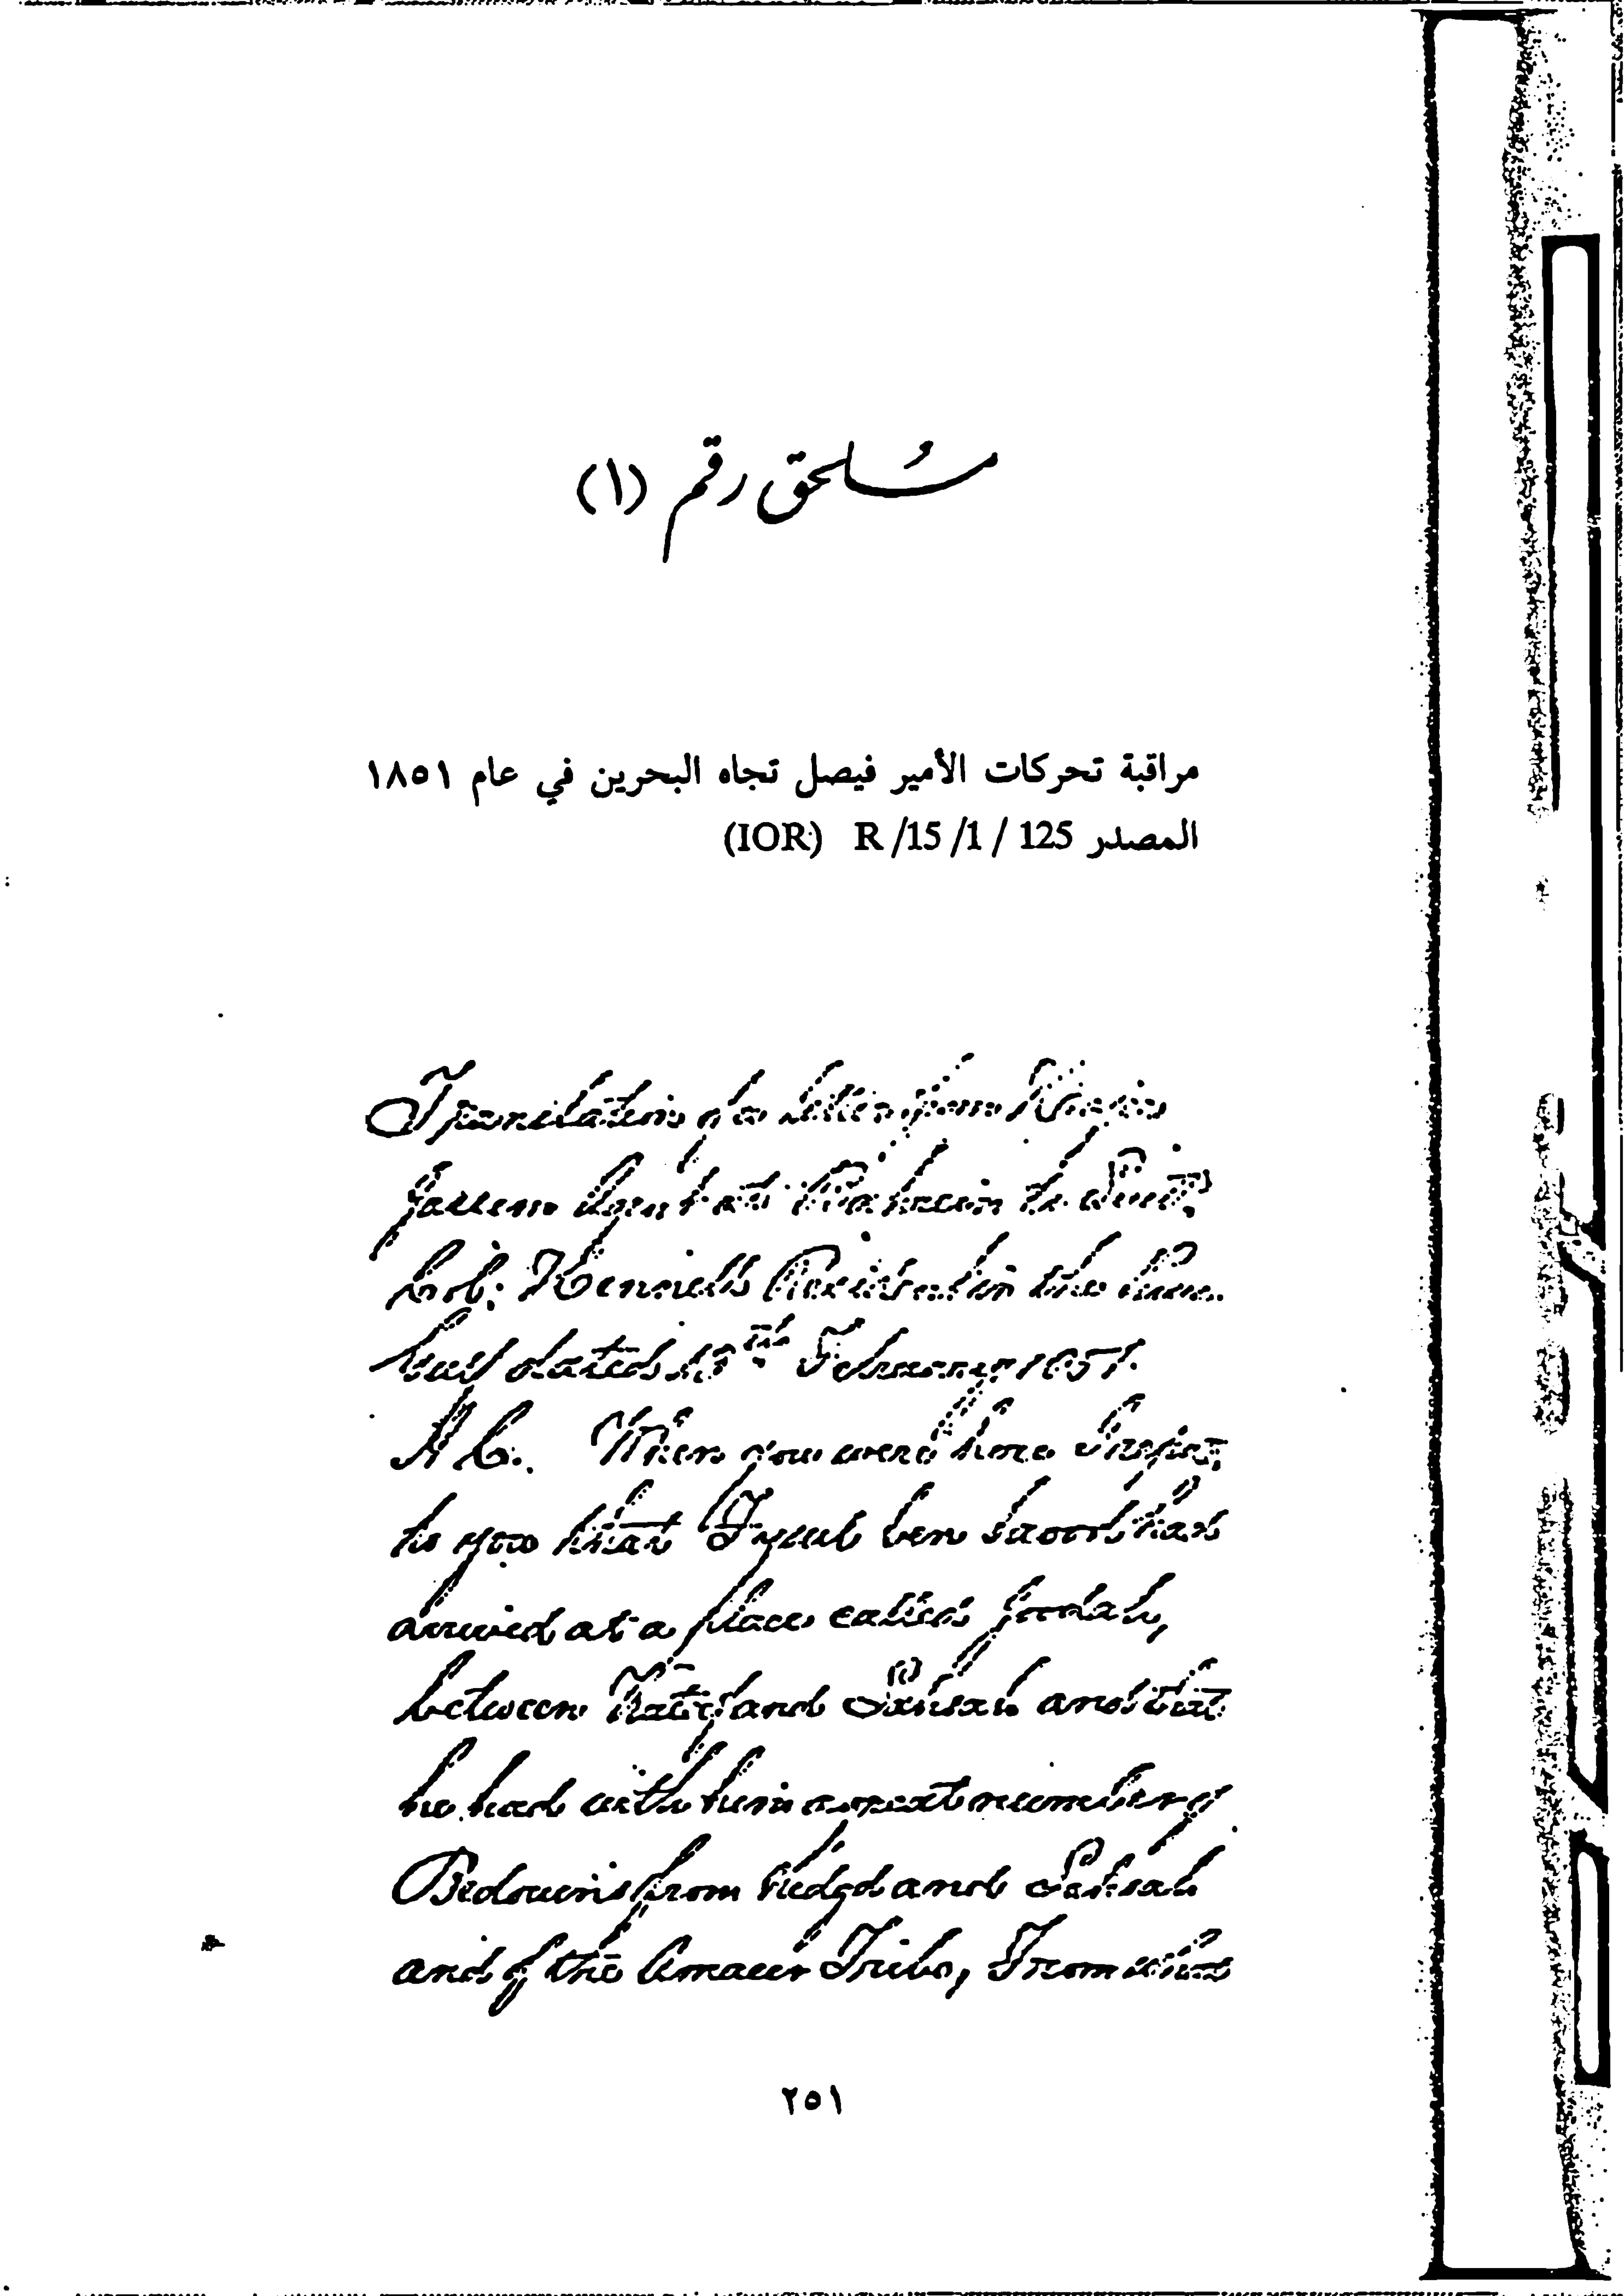 ملحق رقم (١)
مراقبة تحركات الأمير فيصل تجاه البحرين في عام ١٨٥١
المصدر R /15 /1 / 125 (IOR)
Translation of a letter from
Jassem Agent at Bahrein to Lieut.
Col. Hennell Resident in the
Gulf dated 13th February 1851.
A. C. When you were here I
to you that Fysul ben Saood had
arrived at a place called Joodah,
between Katif and Lahsah and that
he had with him a great number of
Bedouins from Nedgd and Lahsah
and of the Amaeer Tribe, From
٢٥١